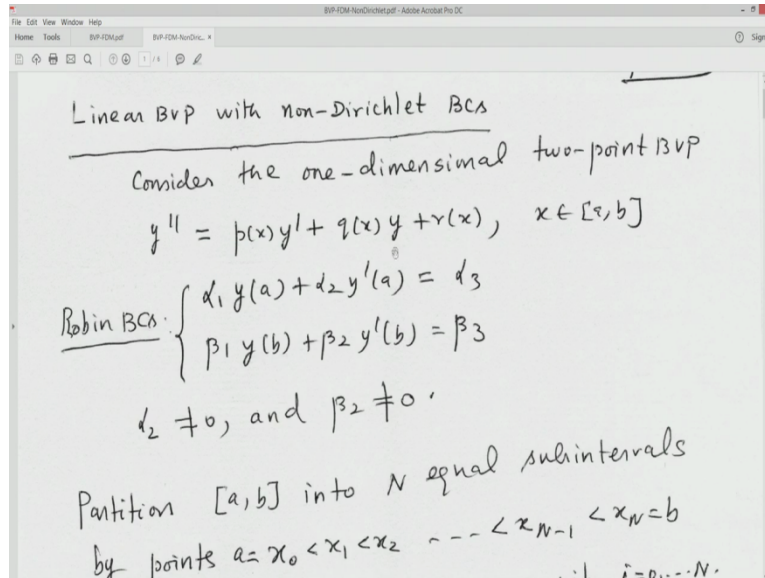 BVP-FDM-NonDirichlet.pdf - Adobe Acrobat Pro DC
File Edit View Window Help
Home Tools BVP-FDM.pdf BVP-FDM-NonDiric... × Sign
1 / 8
Linear BVP with non-Dirichlet BCs
Consider the one-dimensimal two-point BVP
y'' = p(x)y' + q(x)y + r(x), x ∈ [a,b]
Robin BCs: { α₁ y(a) + α₂ y'(a) = α₃
β₁ y(b) + β₂ y'(b) = β₃
α₂ ≠ 0, and β₂ ≠ 0.
Partition [a,b] into N equal subintervals
by points a = x₀ < x₁ < x₂ ---- < x_N-1 < x_N = b